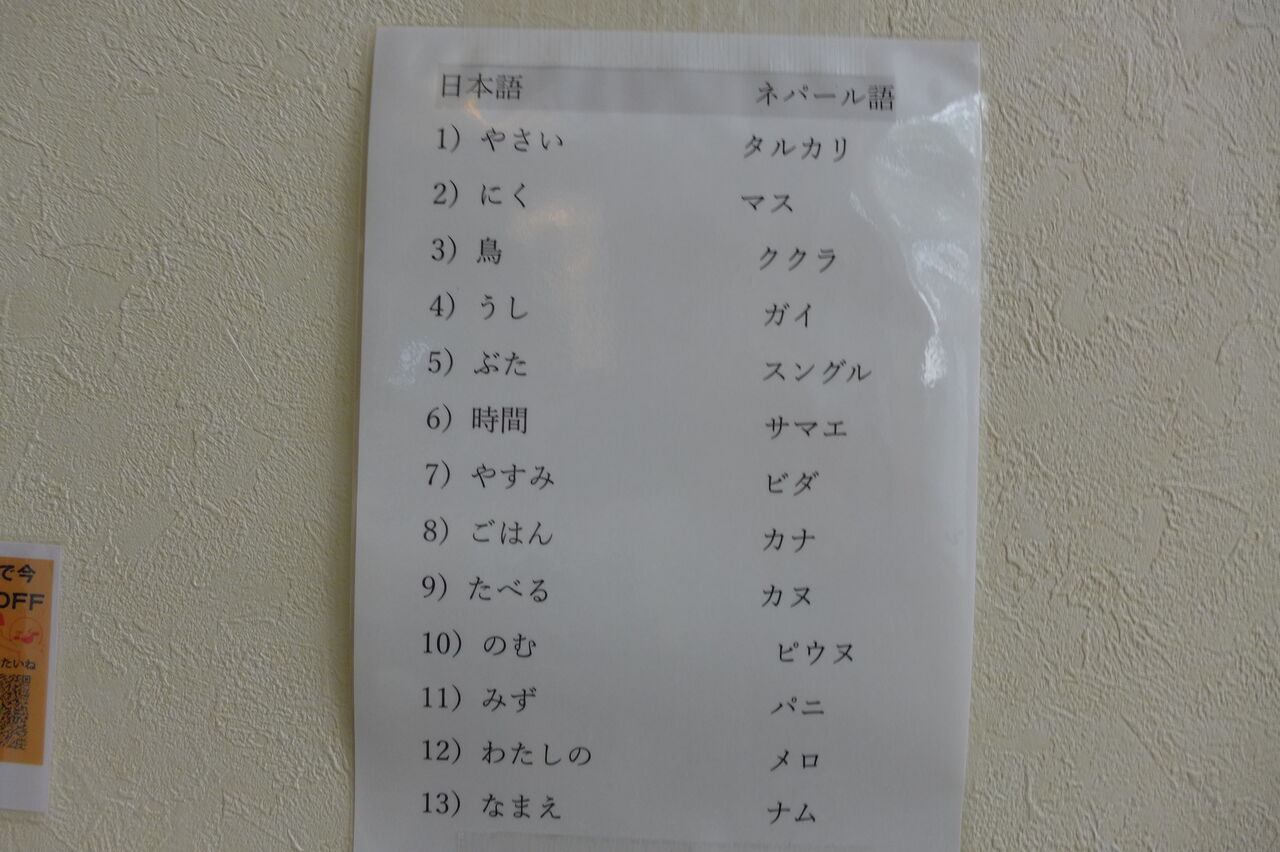 日本語 ネパール語
1）やさい タルカリ
2）にく マス
3）鳥 ククラ
4）うし ガイ
5）ぶた スングル
6）時間 サマエ
7）やすみ ビダ
8）ごはん カナ
9）たべる カヌ
10）のむ ピウヌ
11）みず パニ
12）わたしの メロ
13）なまえ ナム
で今
OFF
たいね